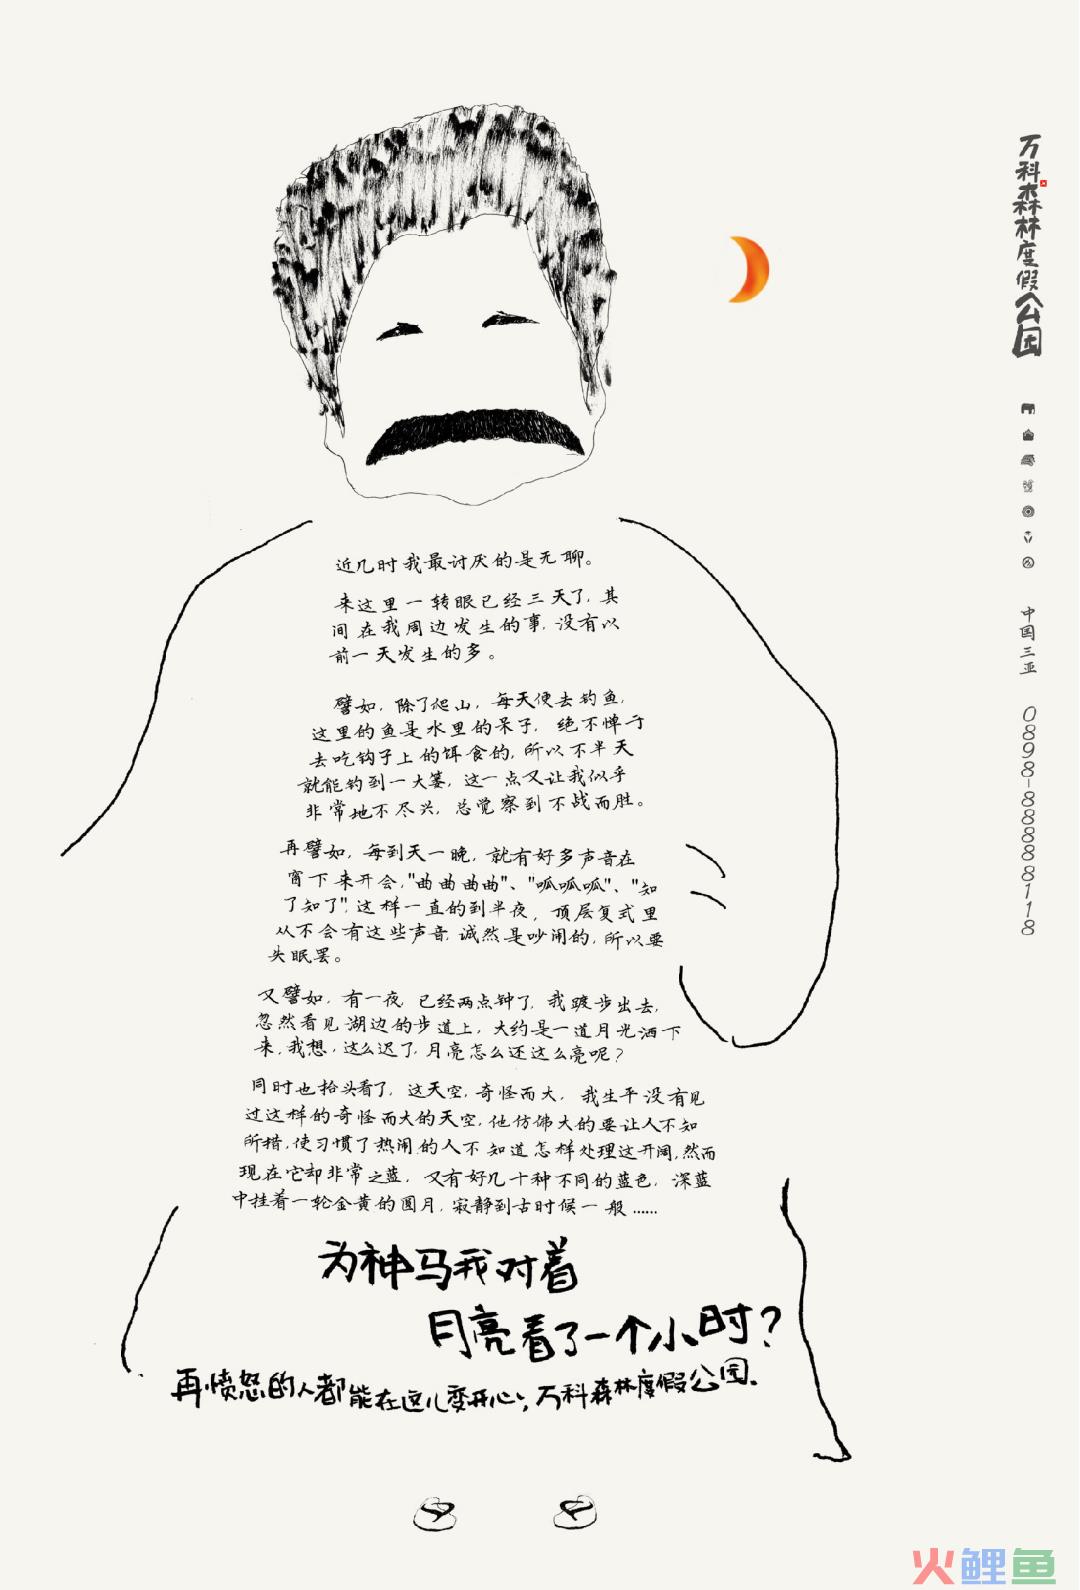 近几时我最讨厌的是无聊。
来这里一转眼已经三天了，其
间在我周边发生的事，没有以
前一天发生的多。
譬如，除了爬山，每天便去钓鱼，
这里的鱼是水里的呆子，绝不惮于
去吃钩子上的饵食的，所以不半天
就能钓到一大篓，这一点又让我似乎
非常地不尽兴，总觉察到不战而胜。
再譬如，每到天一晚，就有好多声音在
窗下来开会，"曲曲曲曲"、"呱呱呱"、"知
了知了"，这样一直的到半夜，顶层复式里
从不会有这些声音，诚然是吵闹的，所以要
失眠罢。
又譬如，有一夜，已经两点钟了，我踱步出去，
忽然看见湖边的步道上，大约是一道月光洒下
来，我想，这么迟了，月亮怎么还这么亮呢？
同时也抬头看了，这天空，奇怪而大，我生平没有见
过这样的奇怪而大的天空，他仿佛大的要让人不知
所措，使习惯了热闹的人不知道怎样处理这开阔，然而
现在它却非常之蓝，又有好几十种不同的蓝色，深蓝
中挂着一轮金黄的圆月，寂静到古时候一般……
为神马我对着
月亮看了一个小时？
再愤怒的人都能在这儿变开心，万科森林度假公园。
万科森林度假公园
中国三亚
0898-88888118
火鲤鱼